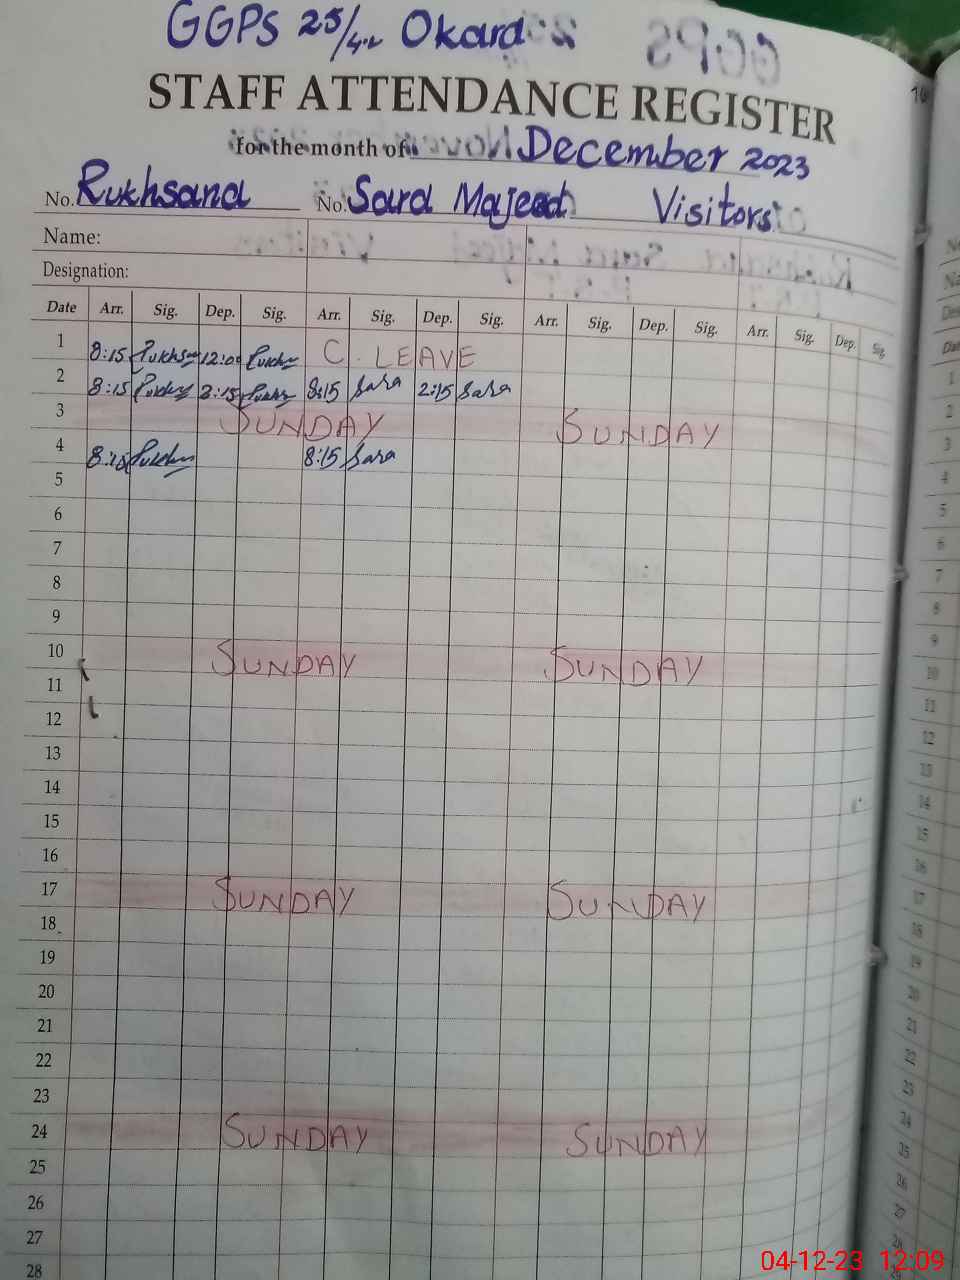 GGPS 25/4.L Okara
STAFF ATTENDANCE REGISTER
for the month of December 2023
No. Rukhsana No. Sara Majeed Visitors
Name:
Designation:
Date Arr. Sig. Dep. Sig. Arr. Sig. Dep. Sig. Arr. Sig. Dep. Sig. Arr. Sig. Dep. Sig
1 8:15 Rukhsana 12:00 Rukhs C. LEAVE
2 8:15 2:15 8:15 Sara 2:15 Sara
3 SUNDAY SUNDAY
4 8:15 8:15 Sara
5
6
7
8
9
10 SUNDAY SUNDAY
11
12
13
14
15
16
17 SUNDAY SUNDAY
18
19
20
21
22
23
24 SUNDAY SUNDAY
25
26
27
28
04-12-23 12:09